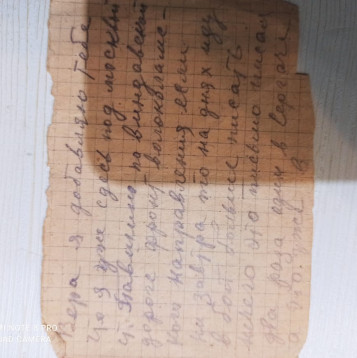 Вера я добавляю Тебе
что я уже сдесь под москвой
г. Павшино по виндавской
дороге фронт волоколамс-
кого направления если
не завтра то на днях иду
в бой больше писать
нечего это письмо писал
два раза один в
а это уже